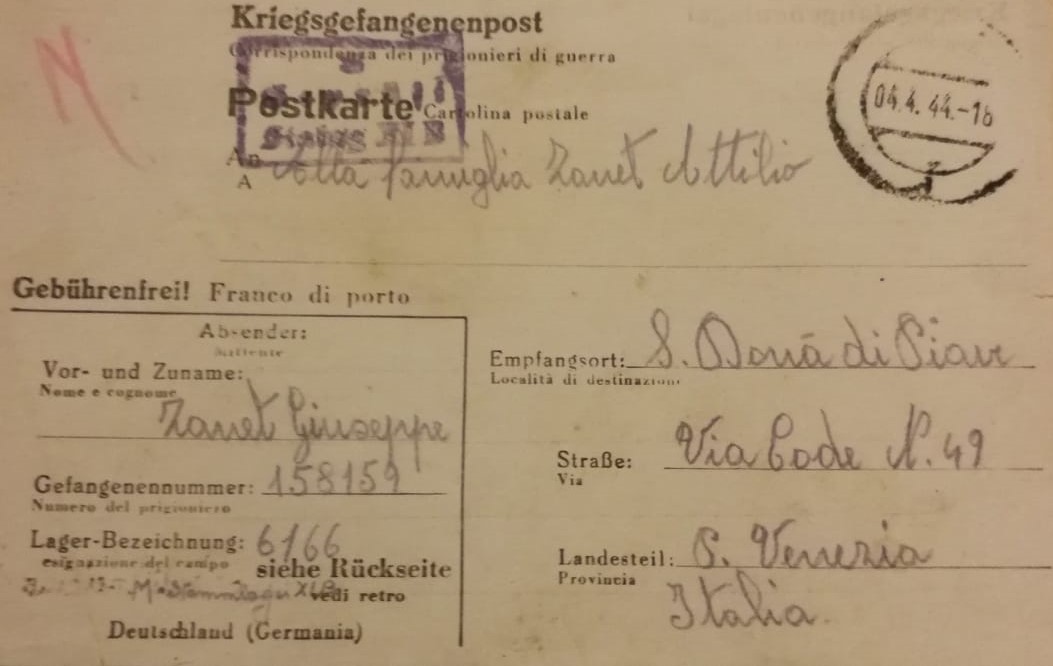 N
Kriegsgefangenenpost
Corrispondenza dei prigionieri di guerra
Postkarte Cartolina postale
Stalag XI B
An Alla famiglia Zanet Attilio
A
04.4.44.-18
Gebührenfrei! Franco di porto
Absender:
Mittente
Vor- und Zuname:
Nome e cognome
Zanet Giuseppe
Gefangenennummer: 158159
Numero del prigioniero
Lager-Bezeichnung: 6166
esignazione del campo siehe Rückseite
M-Stammlager XI B vedi retro
Deutschland (Germania)
Empfangsort: S. Donà di Piave
Località di destinazione
Straße: Via Code N. 49
Via
Landesteil: P. Venezia
Provincia
Italia.